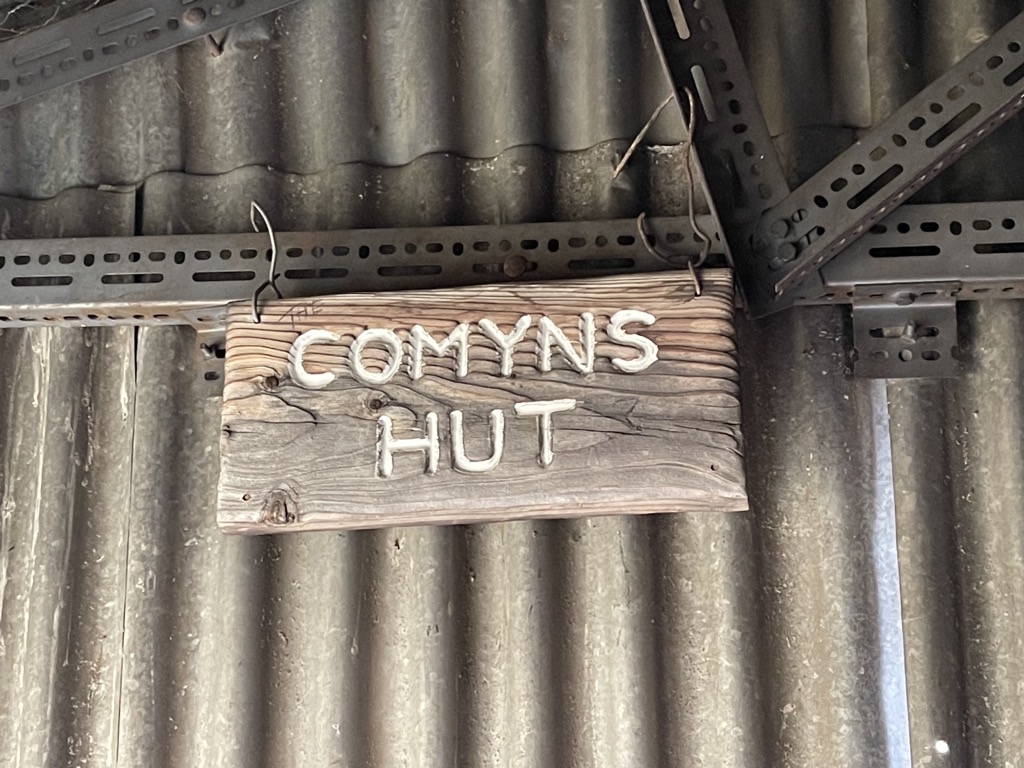 THE
COMYNS
HUT